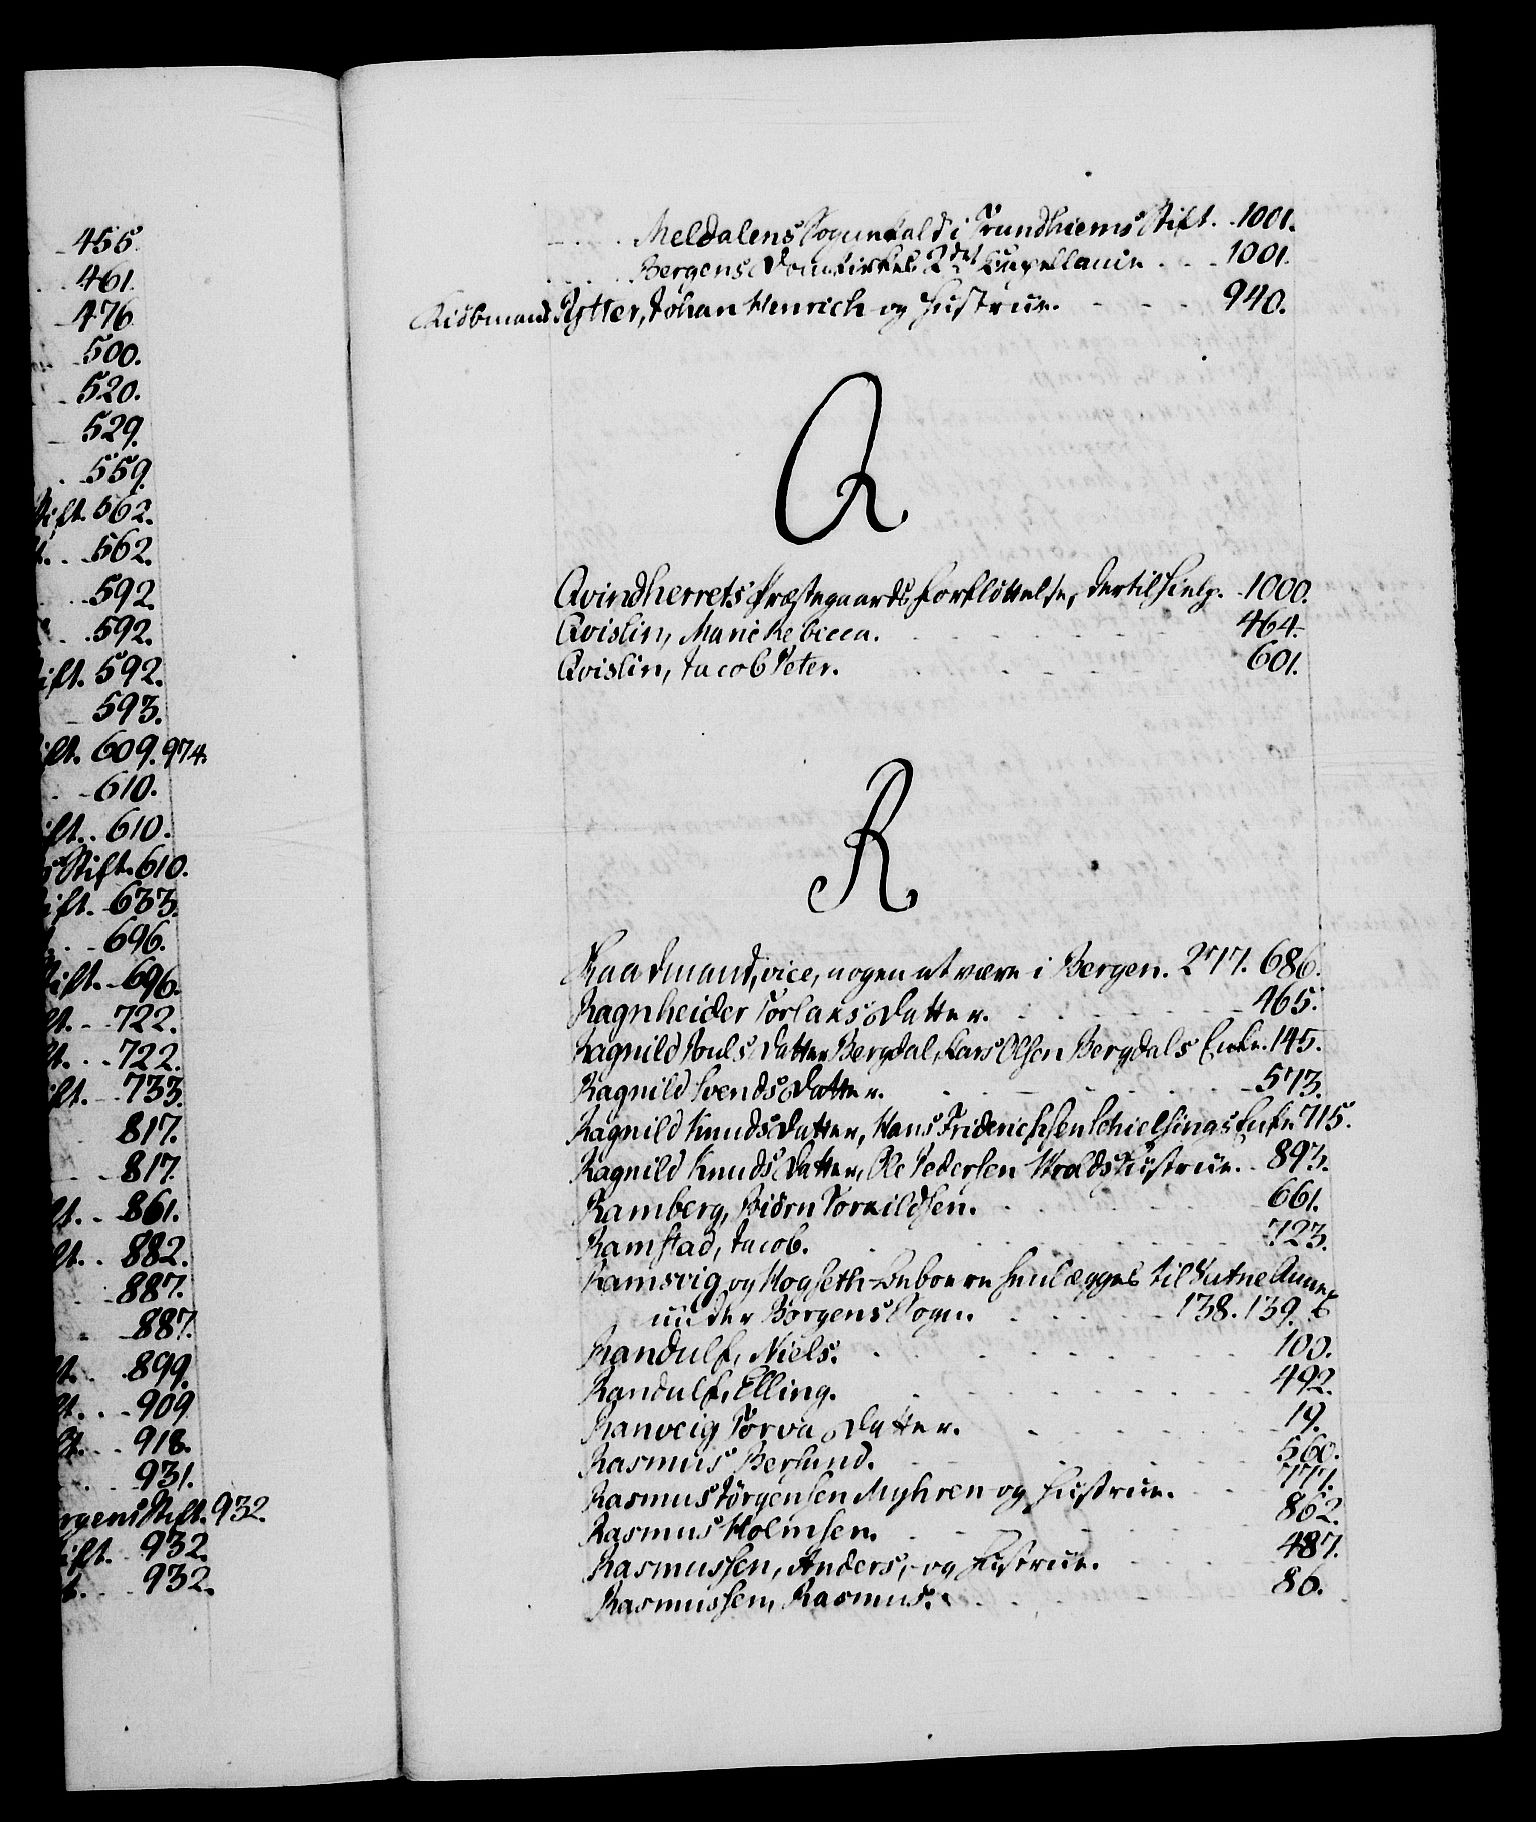 455.
461.
476
500.
520.
529.
559.
Stift. 562.
562.
592.
592.
ift. 592.
593.
ift. 609. 974.
610.
ift. 610.
Stift. 610.
ift. 633.
696.
ift. 696.
722.
722.
ift. 733.
817.
817.
861.
882.
887.
887.
899.
909
918.
931.
rgens Stift. 932.
ift. 932.
932.
Meldalens Sognekald i Trundhiems Stift. 1001.
Bergens Domkirkes 2det Capellanie 1001.
Kiöbmand Rytter, Johan Henrich og Hustrue. 940.
Q
Qvindherrets Præstegaards Forfløttelse, dertil Hielp. 1000.
Qvislin, Marie Rebecca. 464.
Qvislin, Jacob Peter. 601.
R
Raadmand, vice, nogen at være i Bergen. 277. 686.
Ragnheider Torlaks Datter. 465.
Ragnild Pouls Datter Bergdal, Lars Olsen Bergdals Enke. 145.
Ragnild Svends Datter. 573.
Ragnild Knuds Datter, Hans Friderichsen Schielsings Enke 715.
Ragnild Knuds Datter, Ole Pedersen Wrolds Hustrue. 897.
Ramberg, Biörn Torkildsen. 661.
Ramstad, Jacob. 723.
Ramsvig og Hogseth-Beboere henlægges til Vatne Annex
under Borgens Sogn. 138. 139. b
Randulf, Niels. 100.
Randulf, Elling. 492.
Ranveig Torva Datter. 19.
Rasmus Berlund. 560.
Rasmus Jørgensen Myhren og Hustrue. 777.
Rasmus Holmsen. 862.
Rasmussen, Anders, og Hustrue. 487.
Rasmussen, Rasmus. 86.